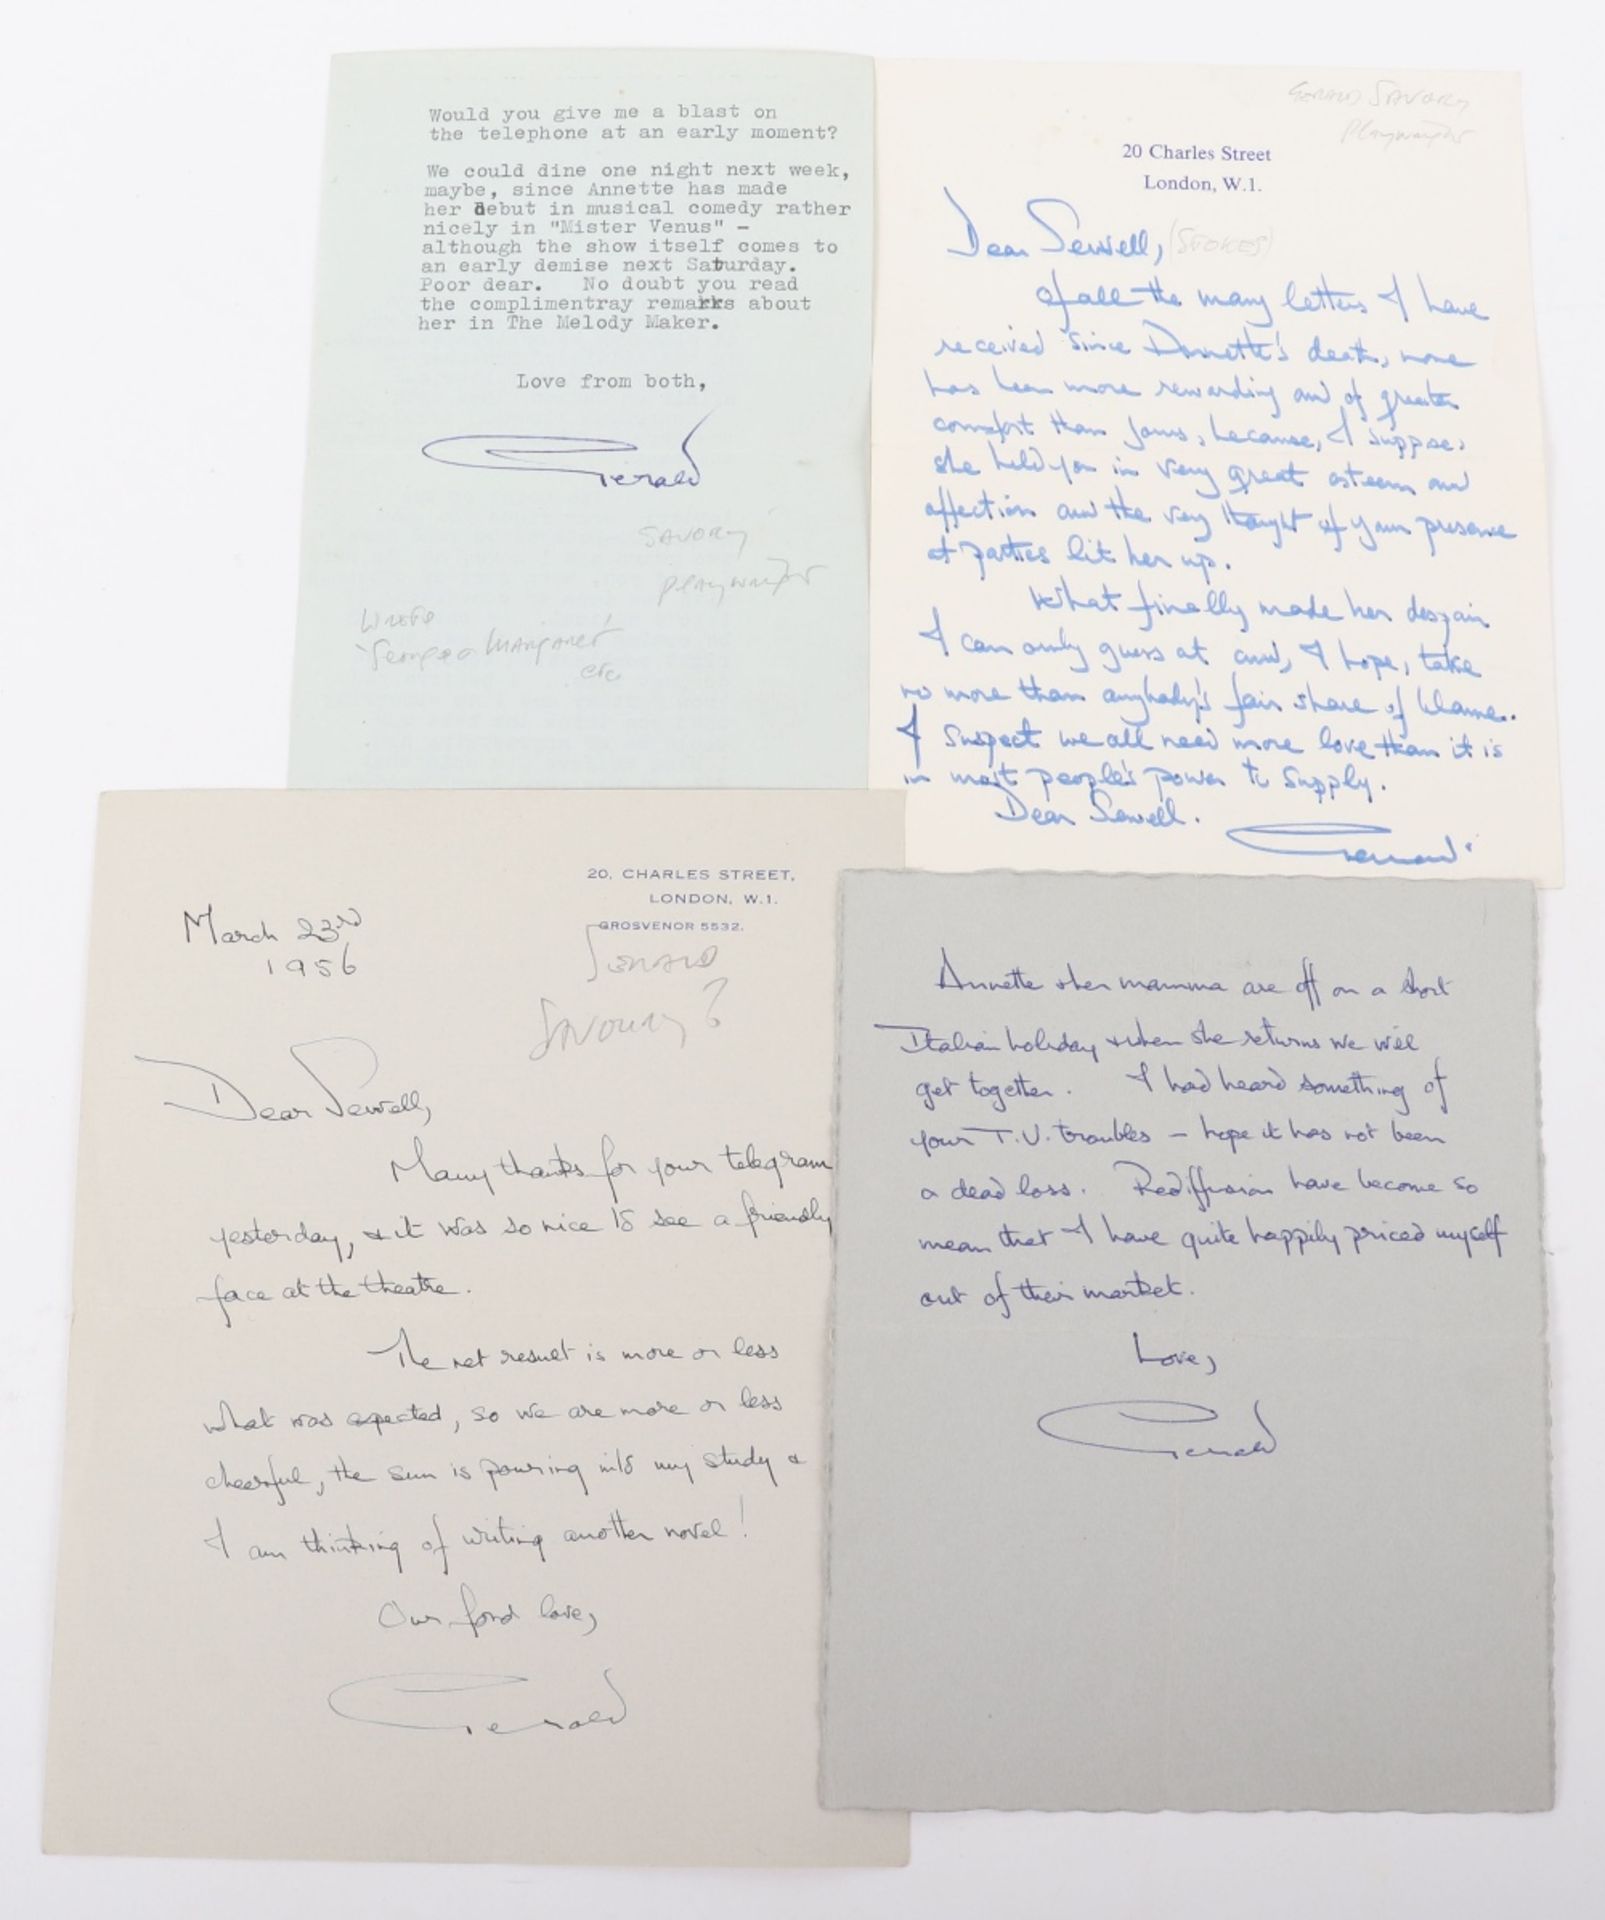 Would you give me a blast on
the telephone at an early moment?
We could dine one night next week,
maybe, since Annette has made
her debut in musical comedy rather
nicely in "Mister Venus" -
although the show itself comes to
an early demise next Saturday.
Poor dear. No doubt you read
the complimentray remarks about
her in The Melody Maker.
Love from both,
Gerald
SAVORY
PLAYWRIGHT
WROTE
'George & MARGARET'
etc
GERALD SAVORY
Playwright
20 Charles Street
London, W.1.
Dear Sewell, (STOKES)
Of all the many letters I have
received since Annette's death, none
has been more rewarding and of greater
comfort than yours, because, I suppose,
she held you in very great esteem and
affection and the very thought of your presence
at parties lit her up.
What finally made her despair
I can only guess at and, I hope, take
no more than anybody's fair share of blame..
I suspect we all need more love than it is
in most people's power to supply.
Dear Sewell.
Gerald
20, CHARLES STREET,
LONDON, W.1.
GROSVENOR 5532.
March 23rd
1956
GERALD
SAVOURY?
Dear Sewell,
Many thanks for your telegram
yesterday, & it was so nice to see a friendly
face at the theatre.
The net result is more or less
what was expected, so we are more or less
cheerful, the sun is pouring into my study &
I am thinking of writing another novel!
Our fond love,
Gerald
Annette & her mamma are off on a short
Italian holiday & when she returns we will
get together. I had heard something of
your T.V. troubles - hope it has not been
a dead loss. Rediffusion have become so
mean that I have quite happily priced myself
out of their market.
Love,
Gerald